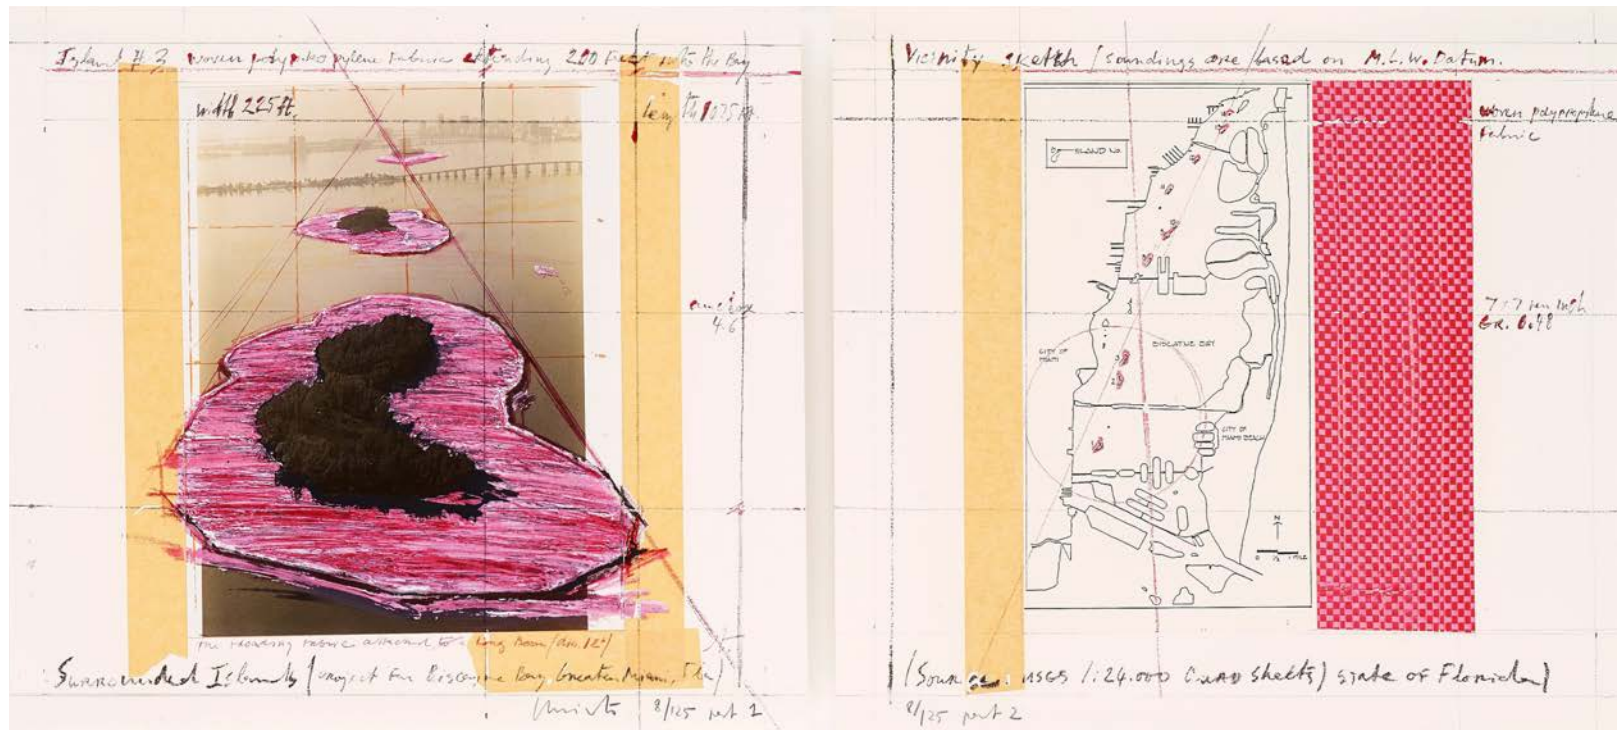 Island # 3 woven polypropylene fabric extending 200 Feet into the Bay
width 225 ft.
length 1075 ft.
4.6
The floating fabric attached to a long Boom (diam. 12")
Surrounded Islands (project for Biscayne Bay, Greater Miami, Fla)
Christo 8/125 part 1
Vicinity sketch / soundings are based on M.L.W. Datum.
woven polypropylene
fabric
ISLAND No.
7 x 7 per inch
GR. 0.98
BISCAYNE BAY
CITY OF
MIAMI
3
2
CITY OF
MIAMI BEACH
N
0 ½ 1 MILE
(Source: USGS 1:24.000 QUAD sheets) state of Florida)
8/125 part 2